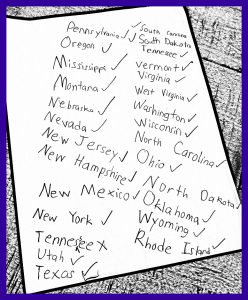 Pennsylvania ✓
Oregon ✓
Mississippi ✓
Montana ✓
Nebraska ✓
Nevada ✓
New Jersey ✓
New Hampshire ✓
New Mexico ✓
New York ✓
Tennessee X
Utah ✓
Texas ✓
South Carolina ✓
South Dakota ✓
Tennessee ✓
Vermont ✓
Virginia ✓
West Virginia ✓
Washington ✓
Wisconsin ✓
North Carolina ✓
Ohio ✓
North Dakota ✓
Oklahoma ✓
Wyoming ✓
Rhode Island ✓